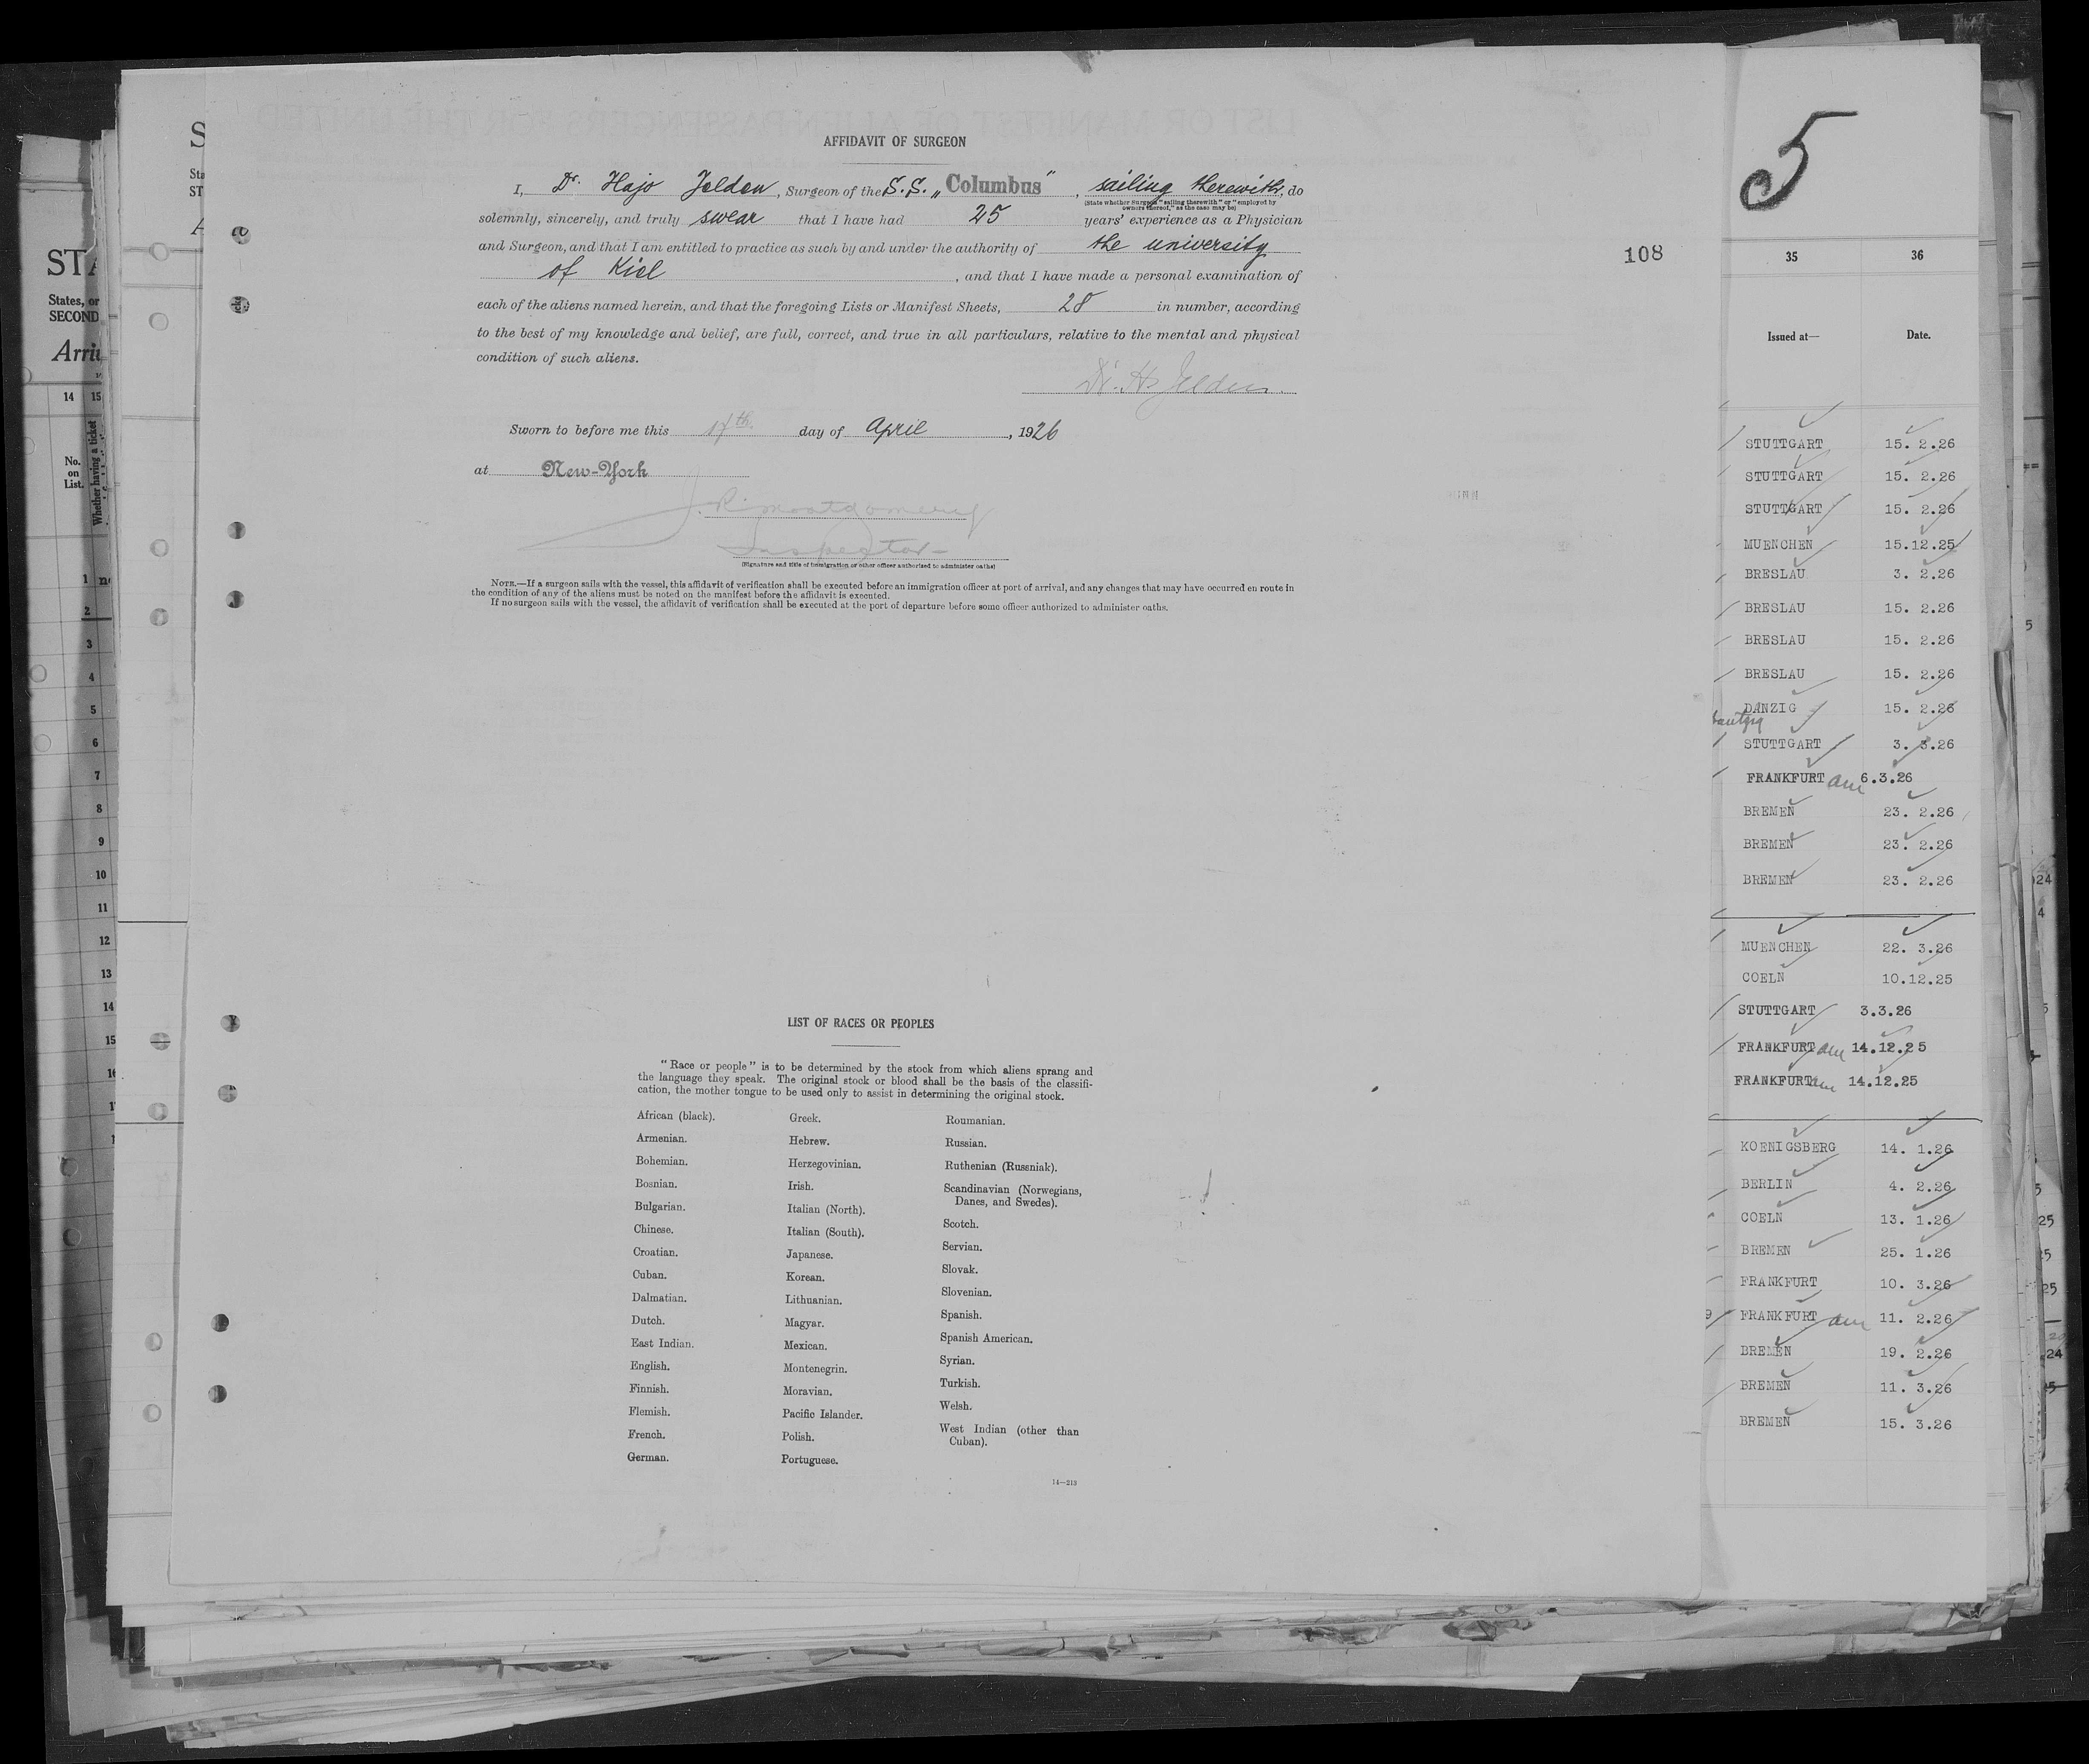 AFFIDAVIT OF SURGEON
I, Dr. Hajo Jelden, Surgeon of the S.S. „Columbus", sailing therewith, do
(State whether Surgeon "sailing therewith" or "employed by
owners thereof," as the case may be)
solemnly, sincerely, and truly swear that I have had 25 years' experience as a Physician
and Surgeon, and that I am entitled to practice as such by and under the authority of the university
of Kiel, and that I have made a personal examination of
each of the aliens named herein, and that the foregoing Lists or Manifest Sheets, 28 in number, according
to the best of my knowledge and belief, are full, correct, and true in all particulars, relative to the mental and physical
condition of such aliens.
Dr. H. Jelden
Sworn to before me this 17th day of April, 1926
at New-York
J. R. Montgomery
Inspector
(Signature and title of immigration or other officer authorized to administer oaths)
NOTE.—If a surgeon sails with the vessel, this affidavit of verification shall be executed before an immigration officer at port of arrival, and any changes that may have occurred en route in
the condition of any of the aliens must be noted on the manifest before the affidavit is executed.
If no surgeon sails with the vessel, the affidavit of verification shall be executed at the port of departure before some officer authorized to administer oaths.
LIST OF RACES OR PEOPLES
"Race or people" is to be determined by the stock from which aliens sprang and
the language they speak. The original stock or blood shall be the basis of the classifi-
cation, the mother tongue to be used only to assist in determining the original stock.
African (black).
Armenian.
Bohemian.
Bosnian.
Bulgarian.
Chinese.
Croatian.
Cuban.
Dalmatian.
Dutch.
East Indian.
English.
Finnish.
Flemish.
French.
German.
Greek.
Hebrew.
Herzegovinian.
Irish.
Italian (North).
Italian (South).
Japanese.
Korean.
Lithuanian.
Magyar.
Mexican.
Montenegrin.
Moravian.
Pacific Islander.
Polish.
Portuguese.
Roumanian.
Russian.
Ruthenian (Russniak).
Scandinavian (Norwegians,
Danes, and Swedes).
Scotch.
Servian.
Slovak.
Slovenian.
Spanish.
Spanish American.
Syrian.
Turkish.
Welsh.
West Indian (other than
Cuban).
14—213
108
5
35 36
Issued at— Date.
STUTTGART 15. 2.26
STUTTGART 15. 2.26
STUTTGART 15. 2.26
MUENCHEN 15.12.25
BRESLAU 3. 2.26
BRESLAU 15. 2.26
BRESLAU 15. 2.26
BRESLAU 15. 2.26
DANZIG 15. 2.26
STUTTGART 3. 3.26
FRANKFURT am 6.3.26
BREMEN 23. 2.26
BREMEN 23. 2.26
BREMEN 23. 2.26
MUENCHEN 22. 3.26
COELN 10.12.25
STUTTGART 3.3.26
FRANKFURT am 14.12.25
FRANKFURT am 14.12.25
KOENIGSBERG 14. 1.26
BERLIN 4. 2.26
COELN 13. 1.26
BREMEN 25. 1.26
FRANKFURT 10. 3.26
FRANKFURT am 11. 2.26
BREMEN 19. 2.26
BREMEN 11. 3.26
BREMEN 15. 3.26
States, or
SECOND
14 15
No.
on
List.
Whether having a ticket
1
2
3
4
5
6
7
8
9
10
11
12
13
14
15